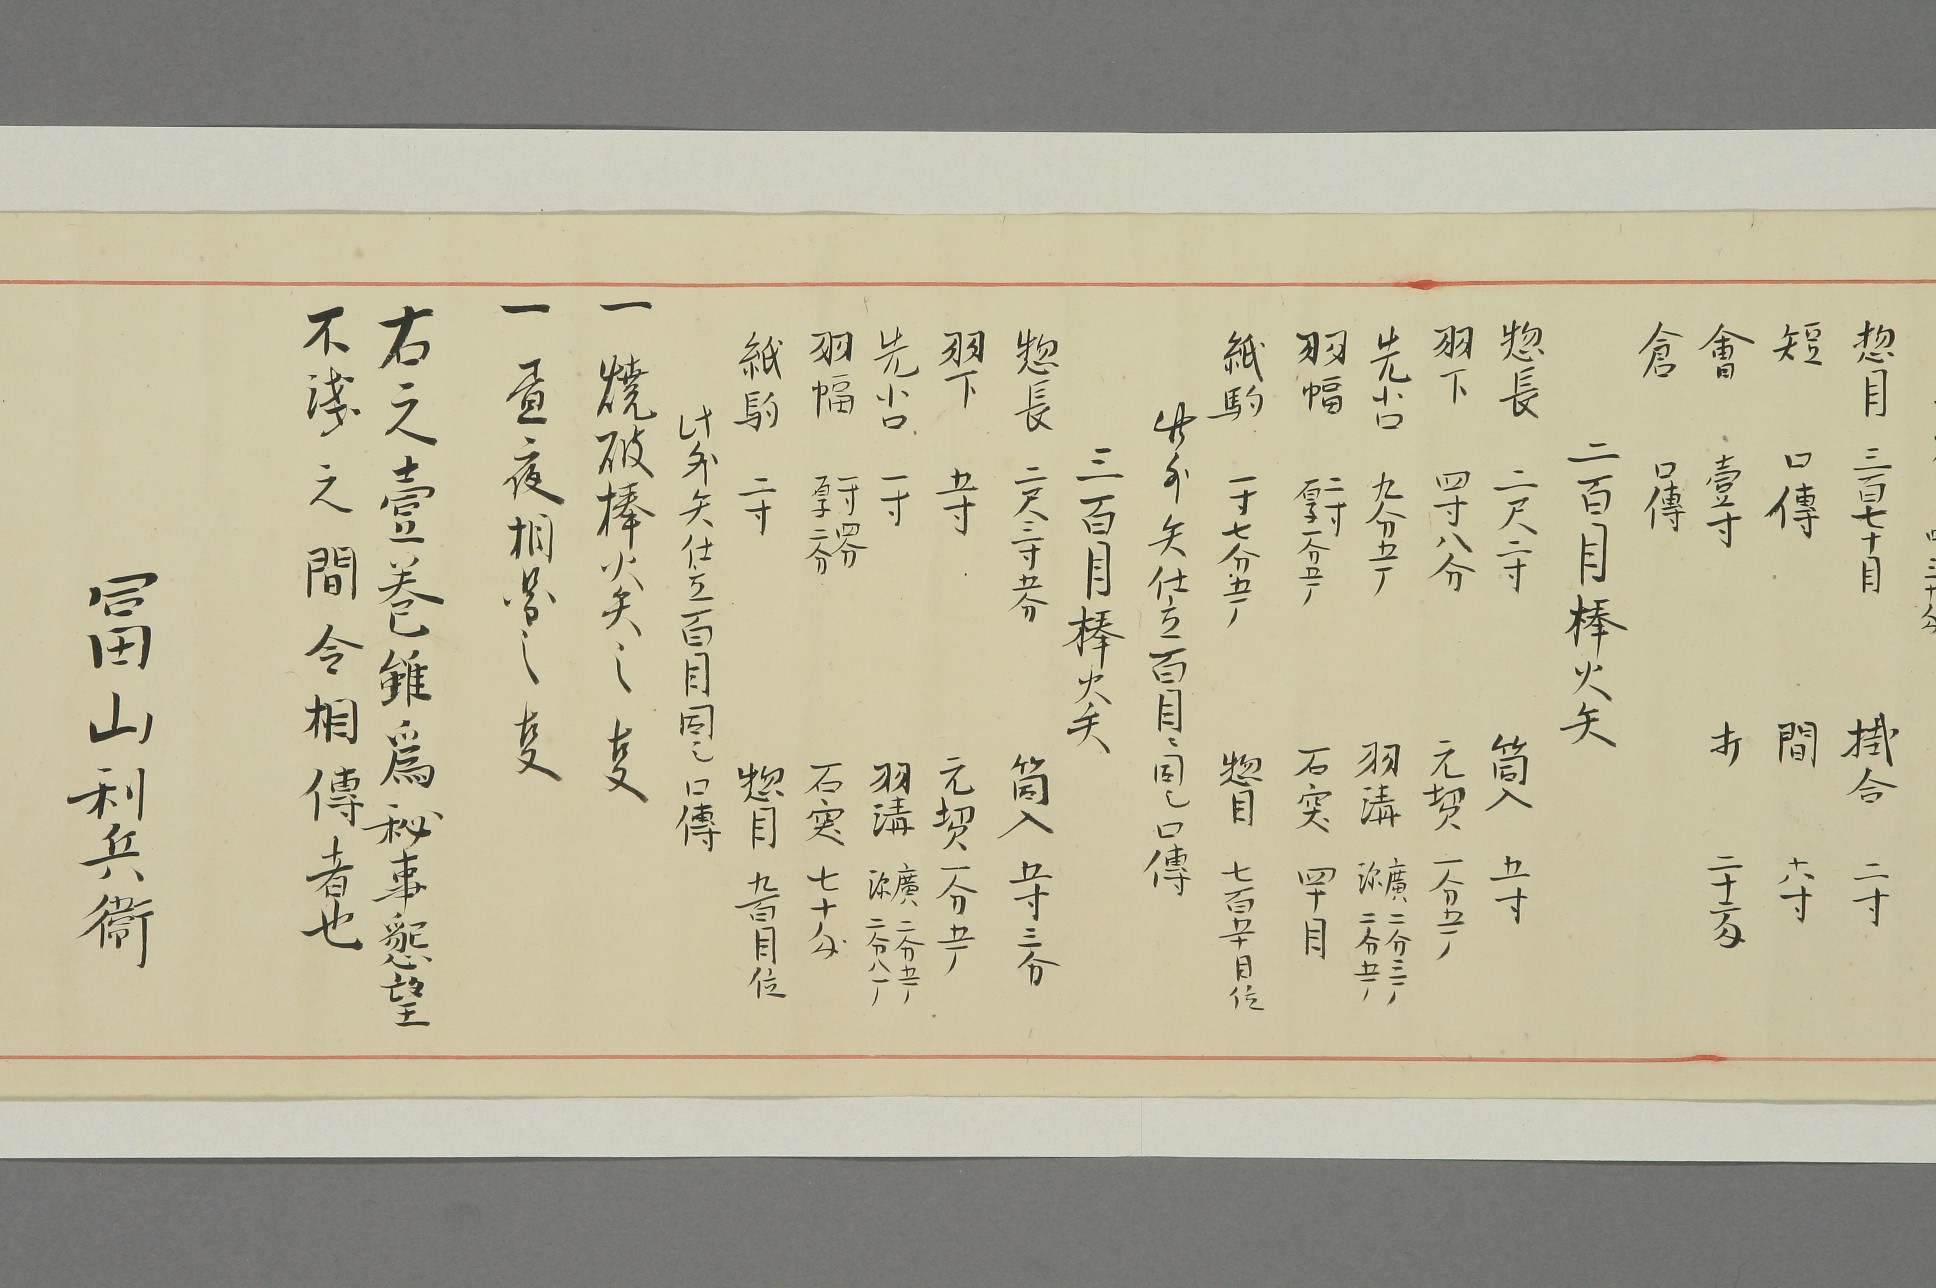 惣目 三百七十目 掛合 二寸
短 口傳 間 六寸
會 壹寸 才
倉 口傳
二百目棒火矢
惣長 二尺二寸 筒入 五寸
羽下 四寸八分 元契 一分五厂
先小口 九分五厂 羽溝 廣二分三厂 深二分五厂
羽幅 二寸 厚一分五厂 石突 四十目
紙駒 一寸七分五厂 惣目 七百五十目位
此外矢仕立百目ニ同シ口傳
三百目棒火矢
惣長 二尺三寸五分 筒入 五寸三分
羽下 五寸 元契 一分五厂
先小口 一寸 羽溝 廣二分五厂 深二分八厂
羽幅 一寸四分 厚二分 石突 七十匁
紙駒 二寸 惣目 九百目位
此外矢仕立百目同シ口傳
一 燒破棒火矢之事
一 昼夜相図之事
右之壹巻雖爲秘事懇望
不淺之間令相傳者也
冨山利兵衞